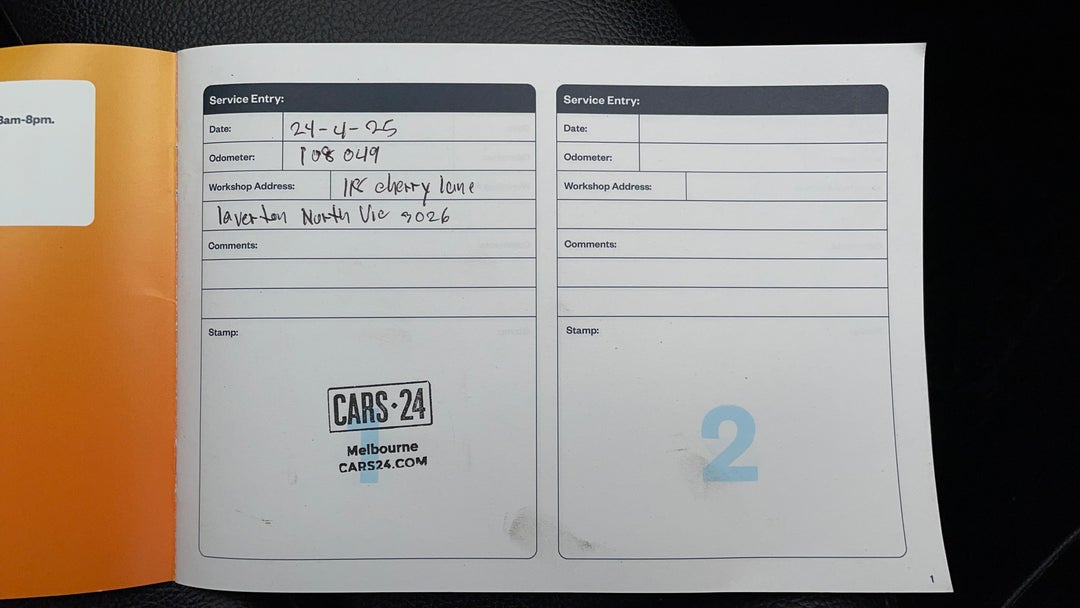 3am-8pm.
Service Entry:
Date: 24-4-25
Odometer: 108 049
Workshop Address: cherry lane
laverton North Vic 3026
Comments:
Stamp:
CARS•24
1
Melbourne
CARS24.COM
Service Entry:
Date:
Odometer:
Workshop Address:
Comments:
Stamp:
2
1